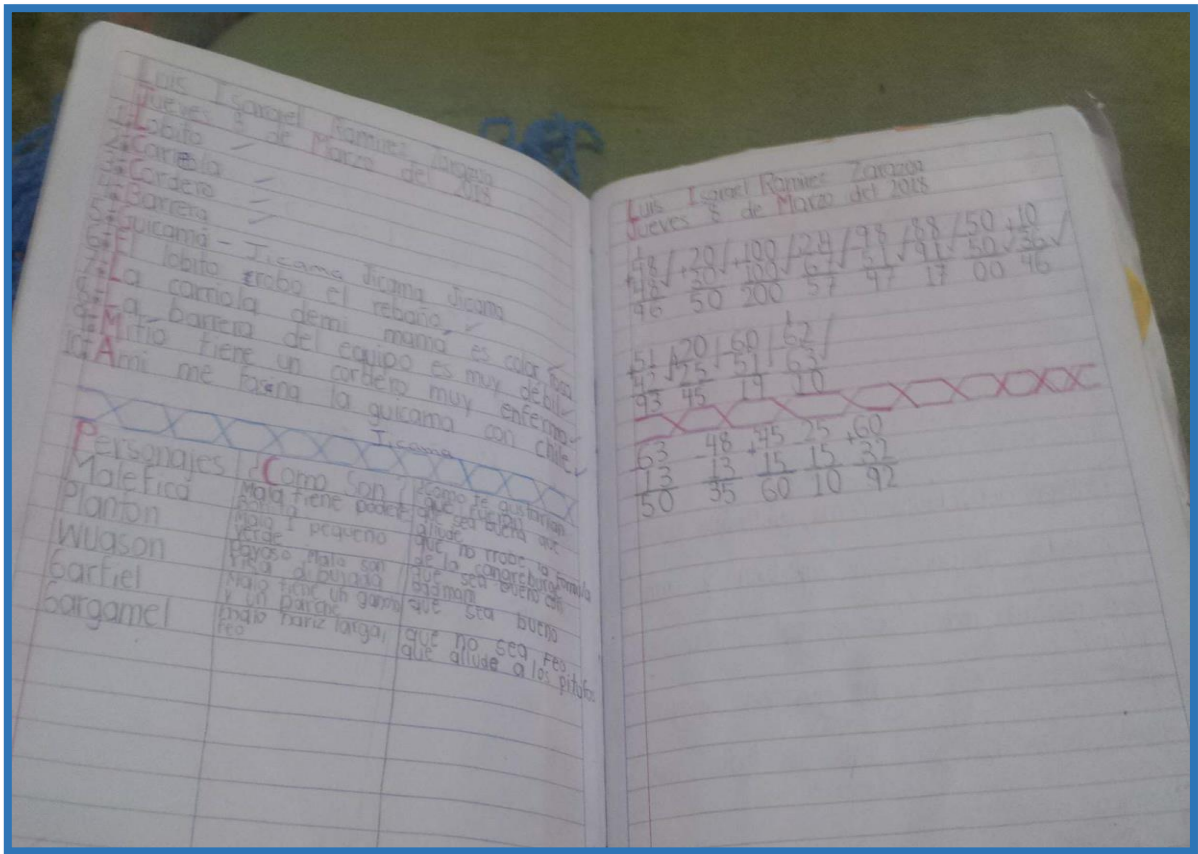 Luis Isamel Ramirez Zarazoa
Jueves 8 de Marzo del 2018
1: Lobito
2: Careola
3: Cordero
4: Barrera
5: Guicama - Jicama Jicama Jicama
6: El lobito rroba el rebaño
7: La carriola demi mamá es color rosa
8: La barrera del equipo es muy débil
9: Mitio tiene un cordero muy enfermo
10: Ami me fasena la guicama con chile
Jicama
Personajes ¿Como son? ¿Como te gustarian que fueran
Malefica Mala tiene poderes que sea buena que allude
Planton Malo I pequeño verde que no rrobe la formula de la cangreburger
Wuason Payaso Malo son risa dibujada que sea bueno con badmam
Garfiel Malo tiene un gancho y un parche que sea bueno
Gargamel malo nariz larga, feo que no sea feo que allude a los pitufos
Luis Isamel Ramirez Zarazoa
Jueves 8 de Marzo del 2018
1 
+48 +20 +100 -98 -50 +10
48 30 100 51 91 50 36
96 50 200 57 47 17 00 46
1
51 +20 -60 62
42 25 51 63
93 45 19
63 -48 +45 25 +60
13 13 15 15 32
50 35 60 10 92